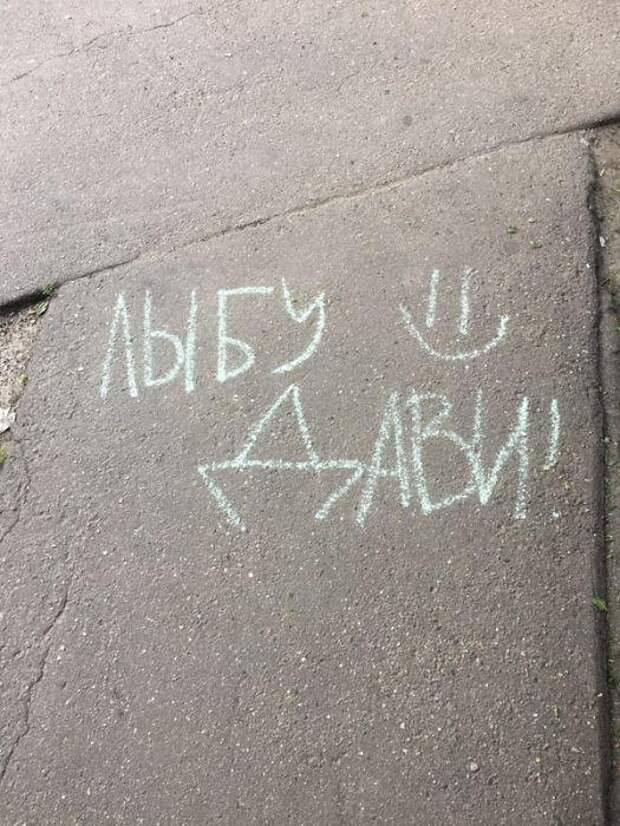 ЛЫБУ
ДАВИ!